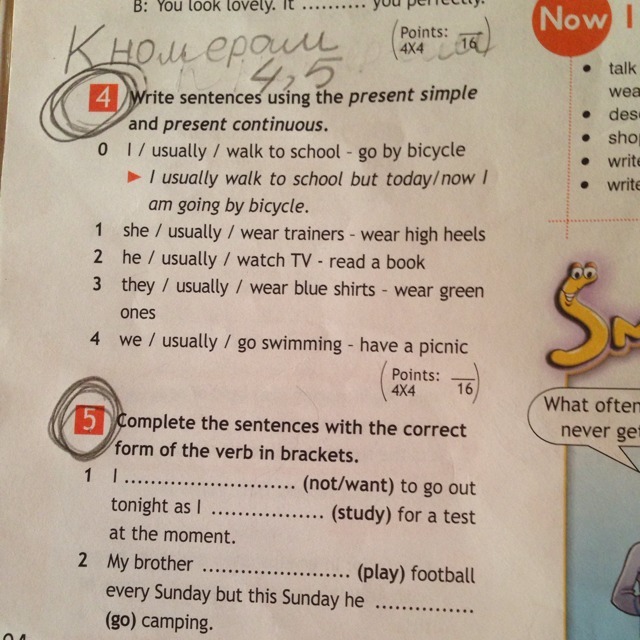 B: You look lovely. It .......... you perfectly.
К номерам
4,5
(Points: 
4X4 16)
4 Write sentences using the present simple
and present continuous.
0 I / usually / walk to school - go by bicycle
► I usually walk to school but today/now I
am going by bicycle.
1 she / usually / wear trainers - wear high heels
2 he / usually / watch TV - read a book
3 they / usually / wear blue shirts - wear green
ones
4 we / usually / go swimming - have a picnic
(Points:
4X4 16)
5 Complete the sentences with the correct
form of the verb in brackets.
1 I ........................ (not/want) to go out
tonight as I ................ (study) for a test
at the moment.
2 My brother ..................... (play) football
every Sunday but this Sunday he ..............
(go) camping.
Now I
• talk
wea
• des
• sho
• write
• write
What often
never ge